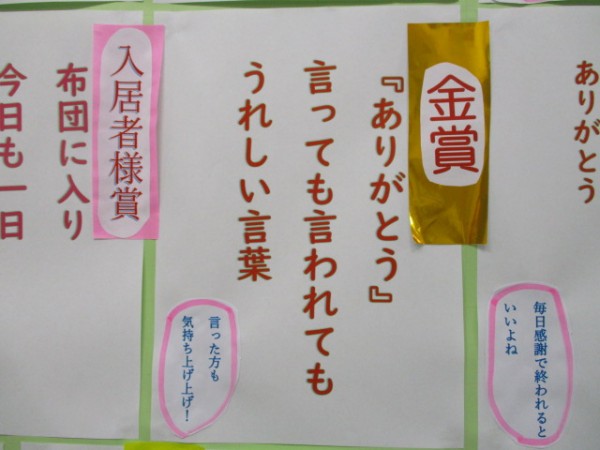 ありがとう
毎日感謝で終われると
いいよね
金賞
『ありがとう』
言っても言われても
うれしい言葉
言った方も
気持ち上げ上げ!
入居者様賞
布団に入り
今日も一日